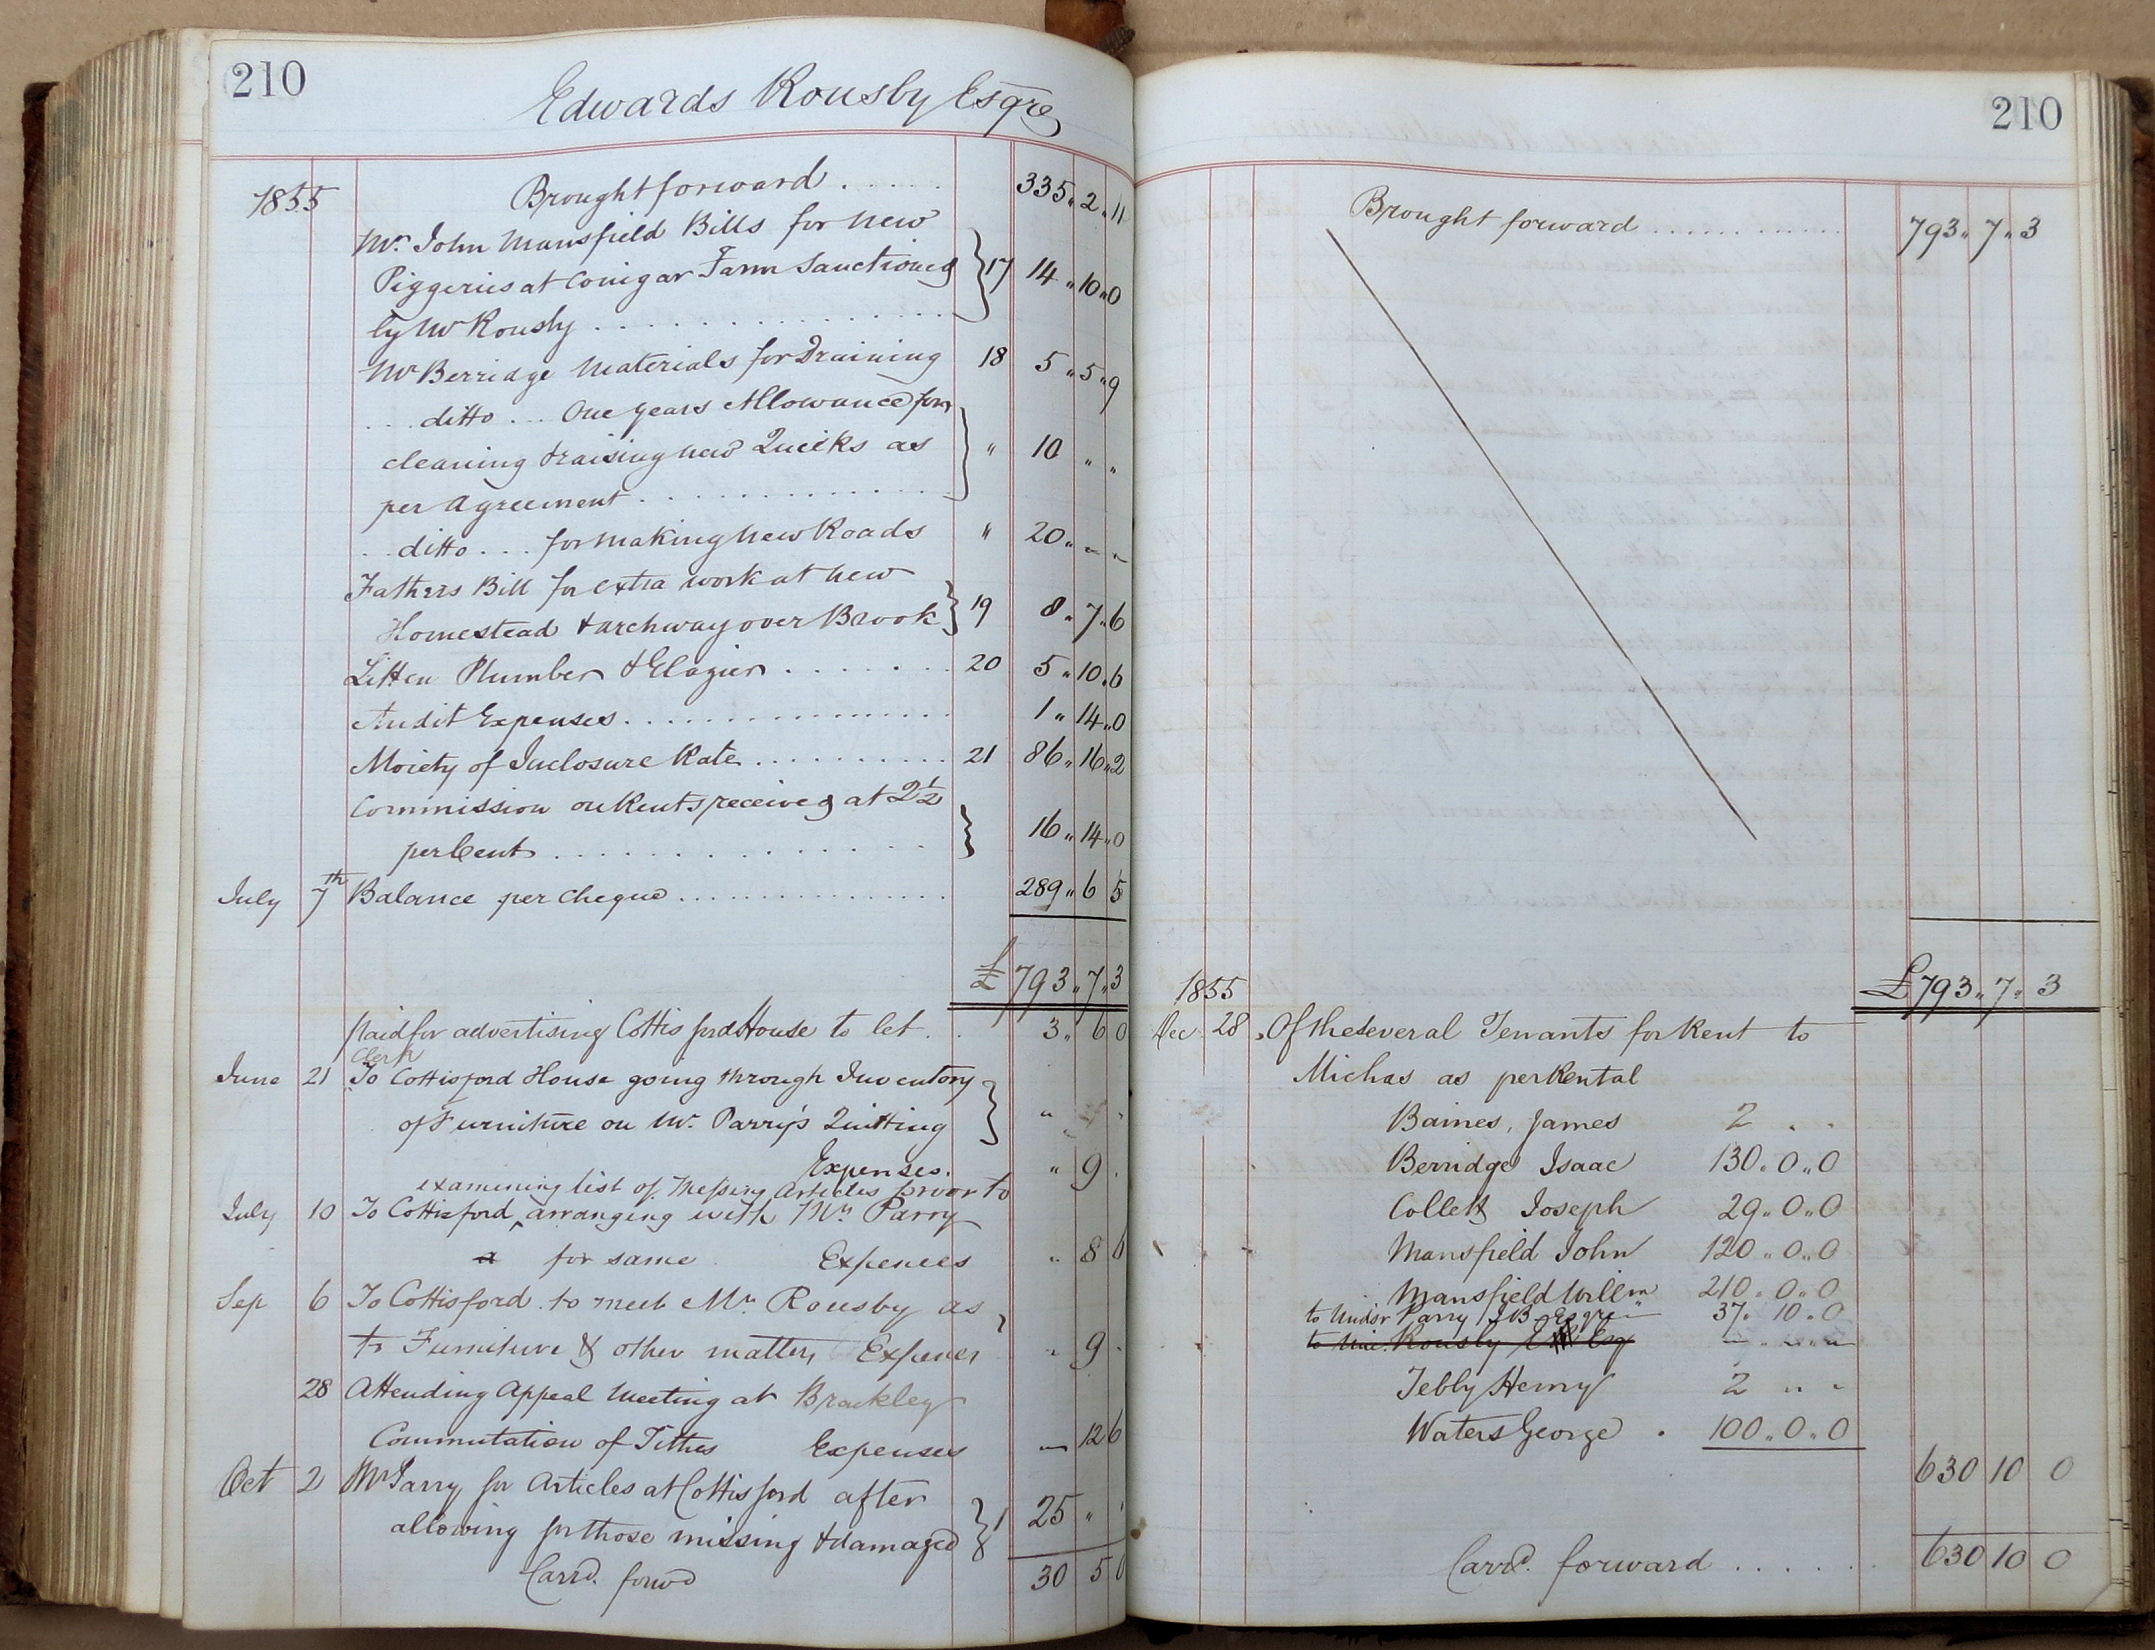 210
Edwards Rousby Esqre
1855 Brought forward . . . . . 335 " 2 " 11
Mr. John Mansfield Bills for new
Piggeries at Conigar Farm Sanctioned } 17 14 " 10 " 0
by Mr Rousby . . . . . . . . . . . . . . .
Mr Berridge Materials for Draining 18 5 " 5 " 9
. . . ditto . . . One years Allowance for
cleaning & raising new Quicks as } " 10 " "
per Agreement . . . . . . . . . . . . . .
. . ditto . . . for making new Roads " 20 " – –
Fathers Bill for extra work at new
Homestead & archway over Brook } 19 8 " 7 " 6
Litten Plumber & Glazier . . . . . . . 20 5 " 10 " 6
Audit Expenses . . . . . . . . . . . . . . . . 1 " 14 " 0
Moiety of Inclosure Rate . . . . . . . . . . 21 86 " 16 " 2
Commission on Rents received at 2½
per Cent . . . . . . . . . . . . . . . } 16 " 14 " 0
July 7th Balance per Cheque . . . . . . . . . . . . . . . . 289 " 6 5
£ 793 " 7 " 3
Paid for advertising Cottisford House to let . . 3 " 6 0
Clerk
June 21 To Cottisford House going through Inventory
of Furniture on Mr. Parry's Quitting }
Expenses. " 9 .
examining list of Missing Articles prior to
July 10 To Cottisford ^ arranging with Mr. Parry
a for same Expences " 8 6
Sep 6 To Cottisford to meet Mr. Rousby as
to Furniture & other matters Expences " 9 .
28 Attending Appeal Meeting at Brackley
Commutation of Tithes Expenses – 12 6
Oct 2 Mr Parry for Articles at Cottisford after
allowing for those missing & damaged } 1 25 "
Carrd. forwd 30 5 0
210
Brought forward . . . . . . . . . . . . 793 " 7 " 3
£ 793 " 7 " 3
1855
Dec 28 Of the Several Tenants for Rent to
Michas as per Rental
Baines, James 2 . .
Berridge Isaac 130 " 0 " 0
Collett Joseph 29 " 0 " 0
Mansfield John 120 " 0 " 0
Mansfield Willm 210 " 0 " 0
to Midsr Parry J B Esqre 37 " 10 " 0
Rousby Esq
Tebby Henry 2 " "
Waters George . 100 " 0 " 0
630 10 0
Carrd. forward . . . . . 630 10 0